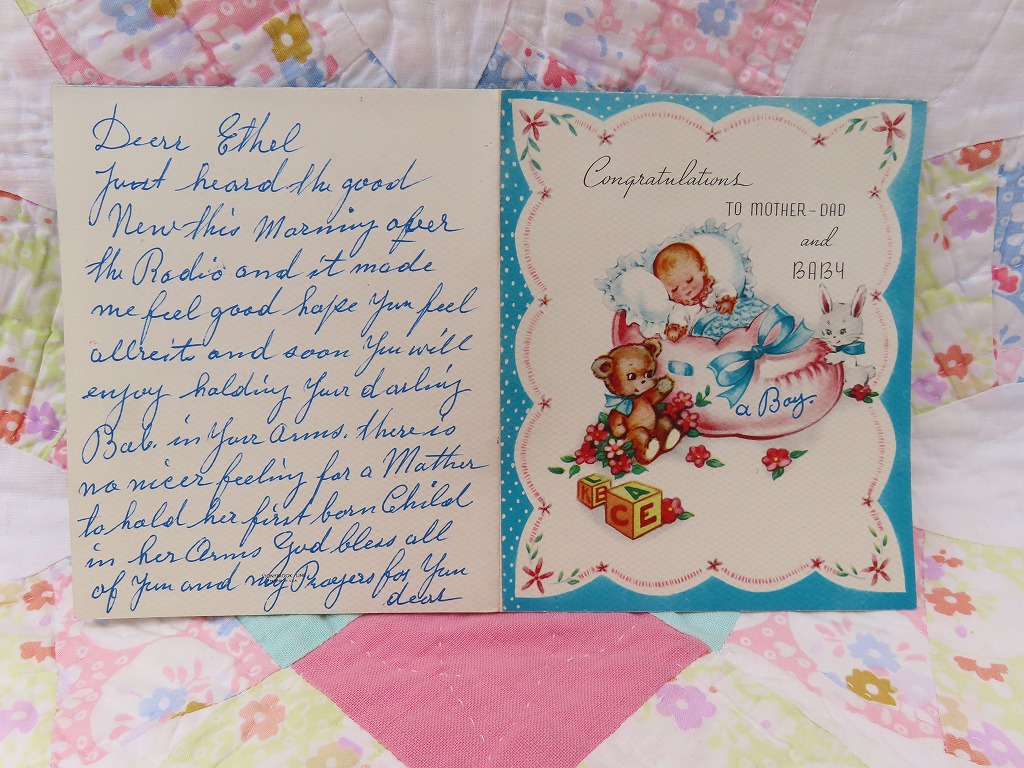 Deerr Ethel
Just heard the good
New this Morning over
the Radio and it made
me feel good hope Yuu feel
allreit and soon You will
enjoy holding Your darling
Bab. in Your Arms. there is
no nicer feeling for a Mother
to hold her first born Child
in her Arms God bless all
of Yuu and my Prayers for Yuu
dear
Congratulations
TO MOTHER-DAD
and
BABY
a Boy.
A
C E